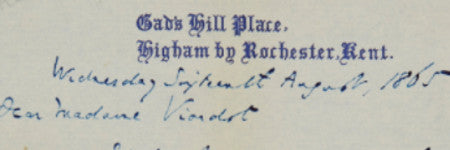 Gad's Hill Place,
Higham by Rochester, Kent.
Wednesday Sixteenth August, 1865
Dear Madame Viardot